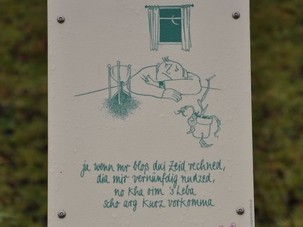 ja wenn mr bloß dui Zeid rechned,
dia mir vernünfdig nudzed,
no kha oim 's Leba
scho arg kurz vorkomma